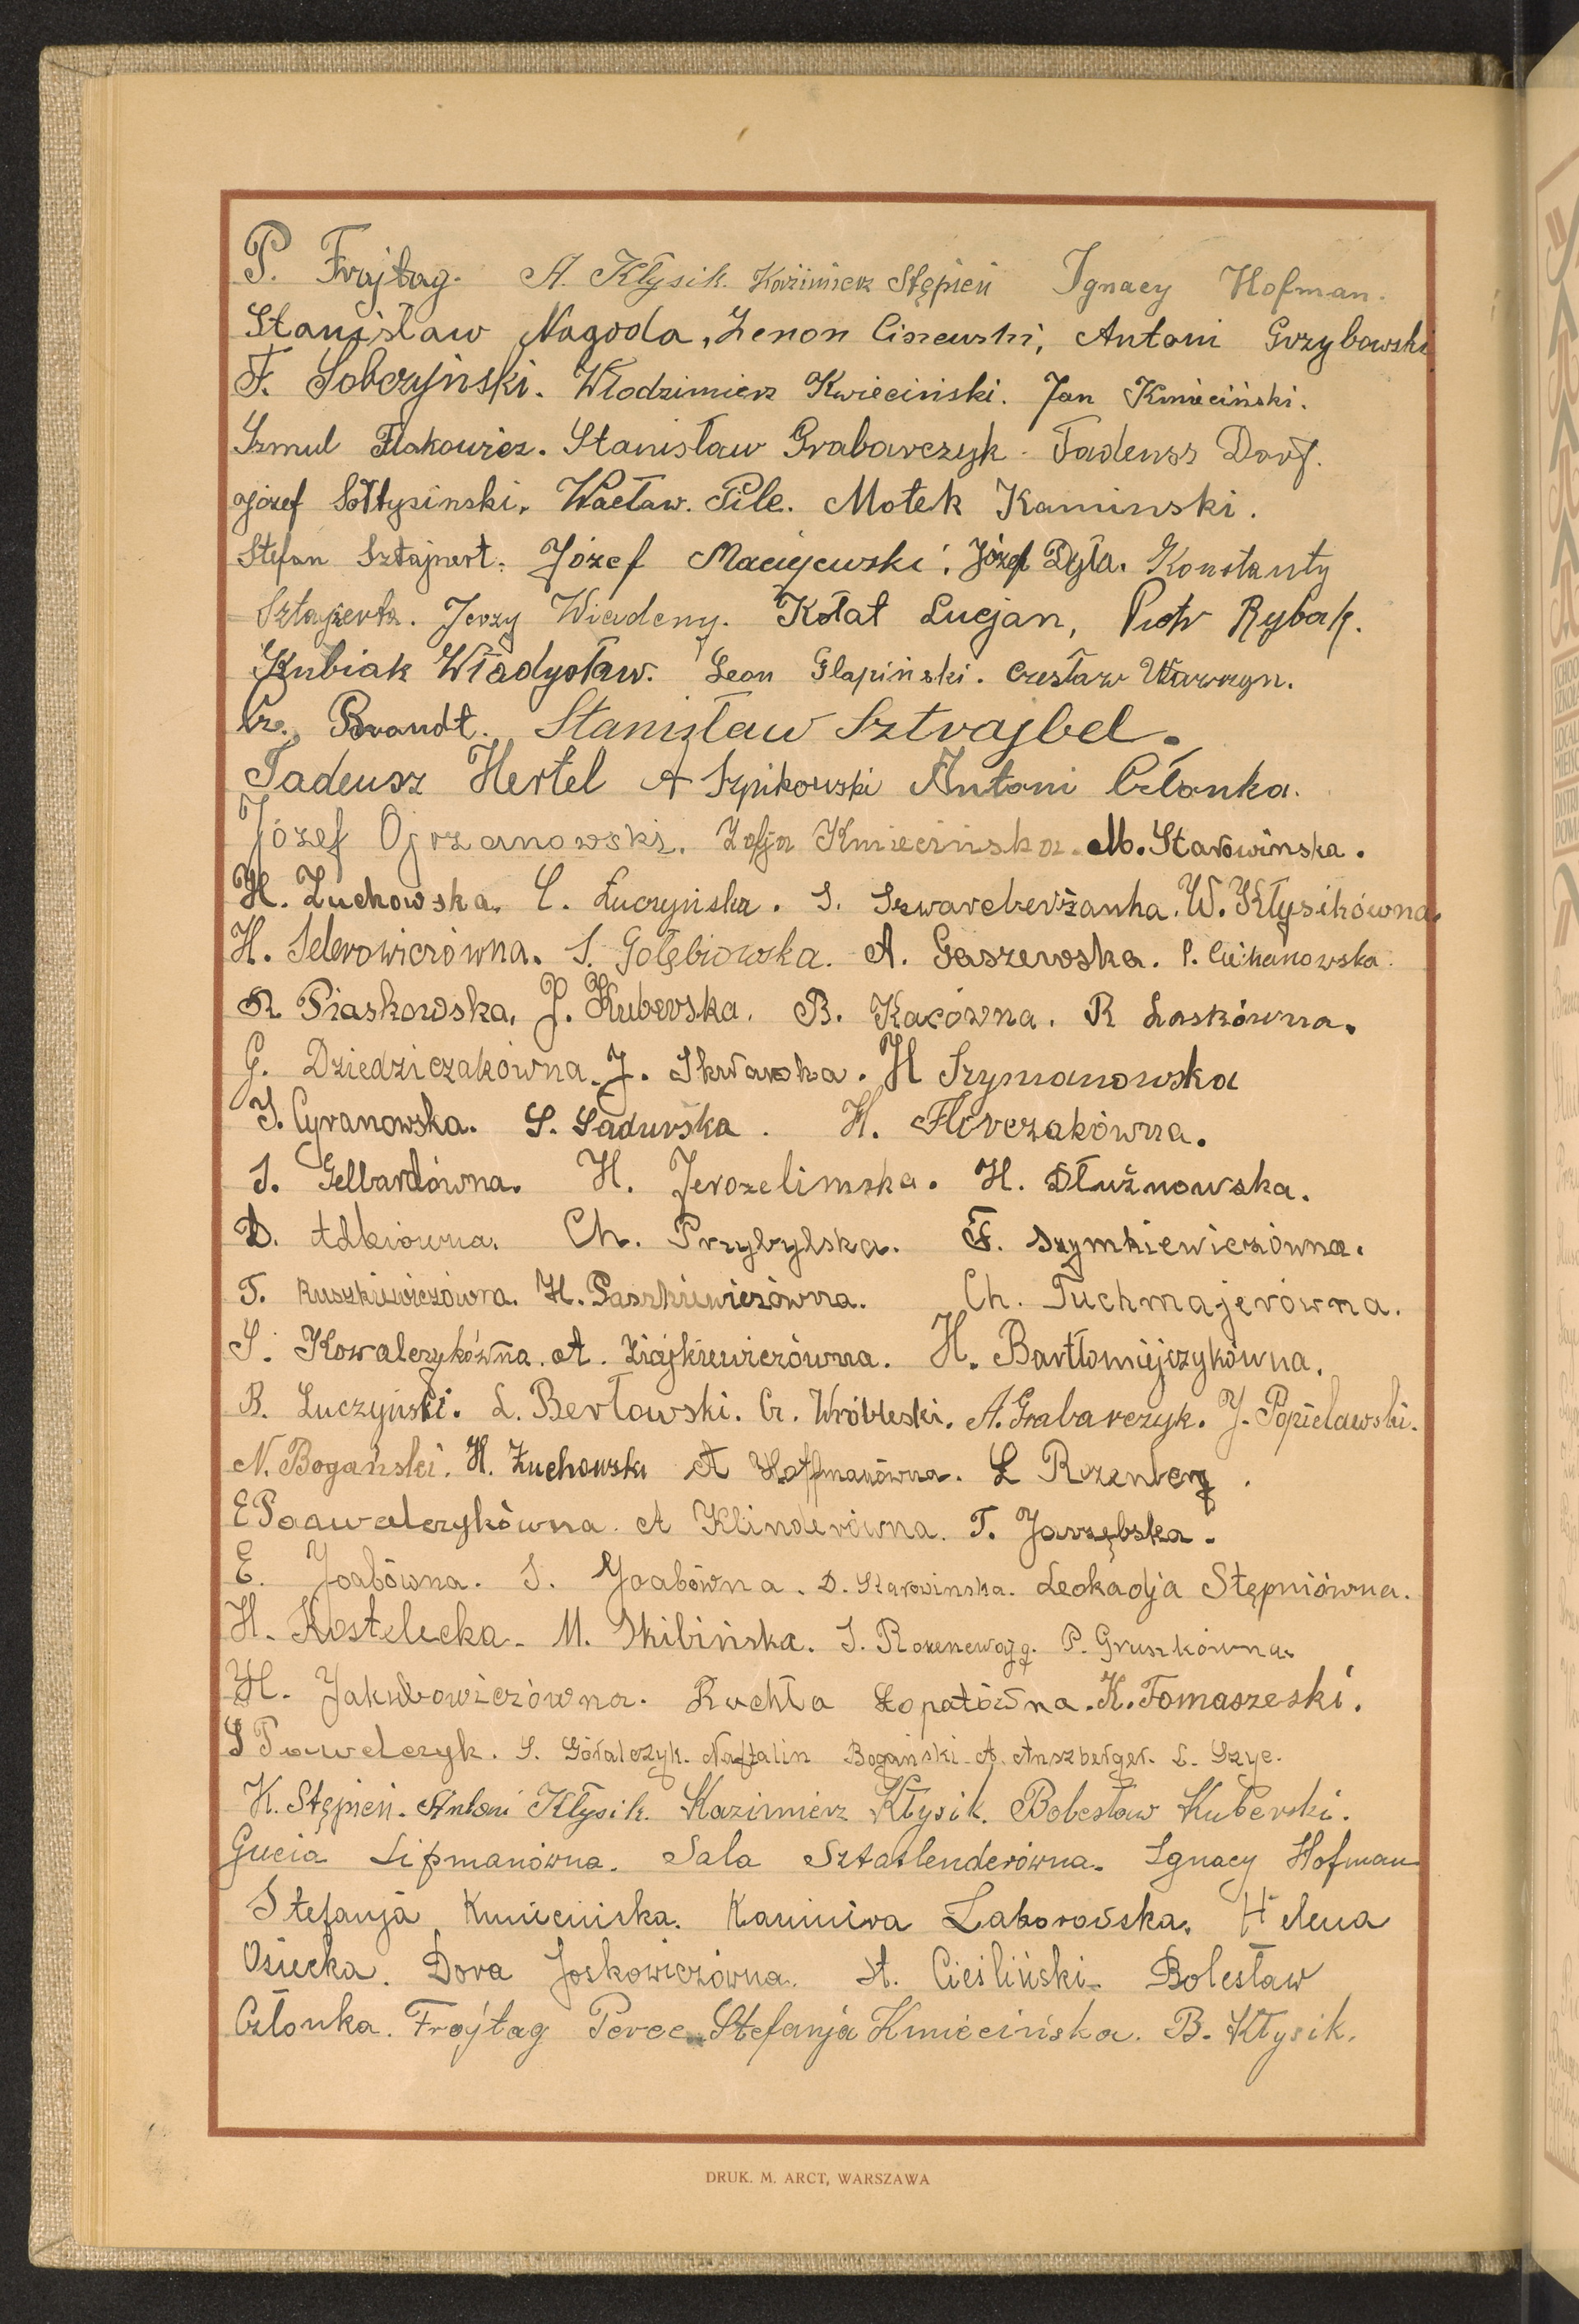 P. Frajtag. A. Kłysik. Kazimierz Stępień Ignacy Hofman.
Stanisław Nagoda, Zenon Ciszewski, Antoni Grzybowski
F. Sobczyński. Włodzimierz Kwieciński. Jan Kmieciński.
Szmul Flakowicz. Stanisław Grabarczyk. Tadeusz Dorf.
Józef Sołtysinski. Wacław. Pile. Motek Kaminski.
Stefan Sztajnert. Józef Maciejewski. Józef Dyła. Konstanty
Jerzy Wiadeny. Kołat Lucjan, Piotr Rybak.
Kubiak Władysław. Leon Glapiński. Czesław Wawrzyn.
Cz. Brandt. Stanisław Sztrajbel.
Tadeusz Hertel A Szpikowski Antoni Członka.
Józef Ojrzanowski. Zofja Kmiecińska. M. Starowinska.
H. Zuchowska. C. Łuczyńska. S. W. Kłysikówna.
H. Selerowiczówna. S. Gołębiowska. A. Gaszewska. P. Ciechanowska.
R. Piaskowska, J. Kuberska. B. Kacówna. R Laskówna.
G. Dziedziczakówna. J. Skwarska. H Szymanowska
J. Cyranowska. S. Sadurska. H. Florczakówna.
S. Gelbardówna. H. Jerozelimska. H. Dłużnowska.
D. Ch. Przybylska. F. Szymkiewiczówna.
T. Ruszkiewiczówna. H. Paszkiewiczówna. Ch. Tuchmajerówna.
S. Kowalczykówna. A. Ziajkiewiczówna. H. Bartłomiejczykówna.
B. Łuczyński. L. Berłowski. Cz. Wróbleski. A. Grabarczyk. J. Popielawski.
N. Bogański. H. Żuchowski A Hoffmanówna. L Rozenberg.
E Paawelczykówna. A Klinderówna. T. Jarzębska.
E. Joabówna. S. Joabówna. D. Starowinska. Leokadja Stępniówna.
H. Kostelecka. M. Skibińska. S. P. Gruszkówna.
H. Jakubowiczówna. Ruchla Łopatówna. K. Tomaszeski.
S Pawelczyk. S. Góralczyk. Naftalin Bogański. A. Anszberger. L. Szyc.
K. Stępień. Antoni Kłysik. Kazimierz Kłysik. Bolesław Kuberski.
Gucia Lipmanówna. Sala Sztatlenderówna. Ignacy Hofman
Stefanja Kmiecińska. Kazimiera Zaborowska. Helena
Osiecka. Dora Joskowiczówna. A. Cieśliński. Bolesław
Członka. Frajtag Perec. Stefanja Kmiecińska. B. Kłysik.
DRUK. M. ARCT, WARSZAWA